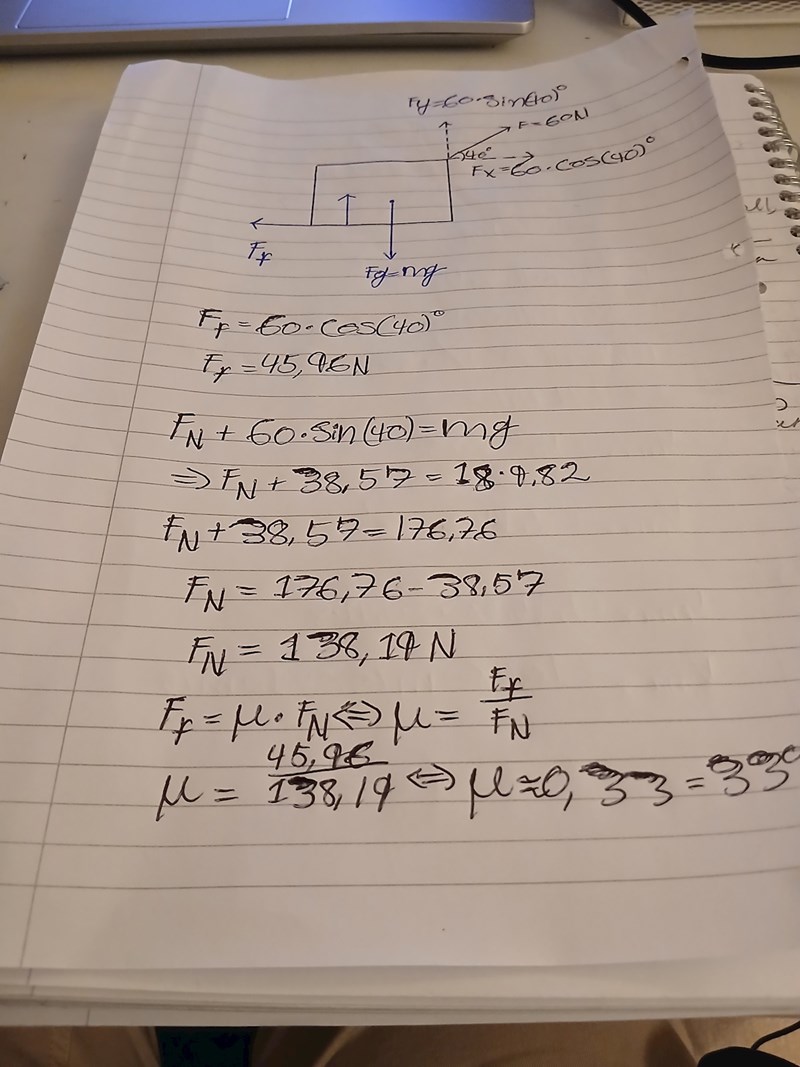 Fy=60·sin(40)°
F=60N
40°
Fx=60·cos(40)°
Ff
Fg=mg
Ff=60·cos(40)°
Ff=45,96N
FN+60·sin(40)=mg
⇒FN+38,57=18·9,82
FN+38,57=176,76
FN=176,76-38,57
FN=138,19N
Ff=μ·FN⇔μ=Ff/FN
μ=45,96/138,19⇔μ≈0,33=33